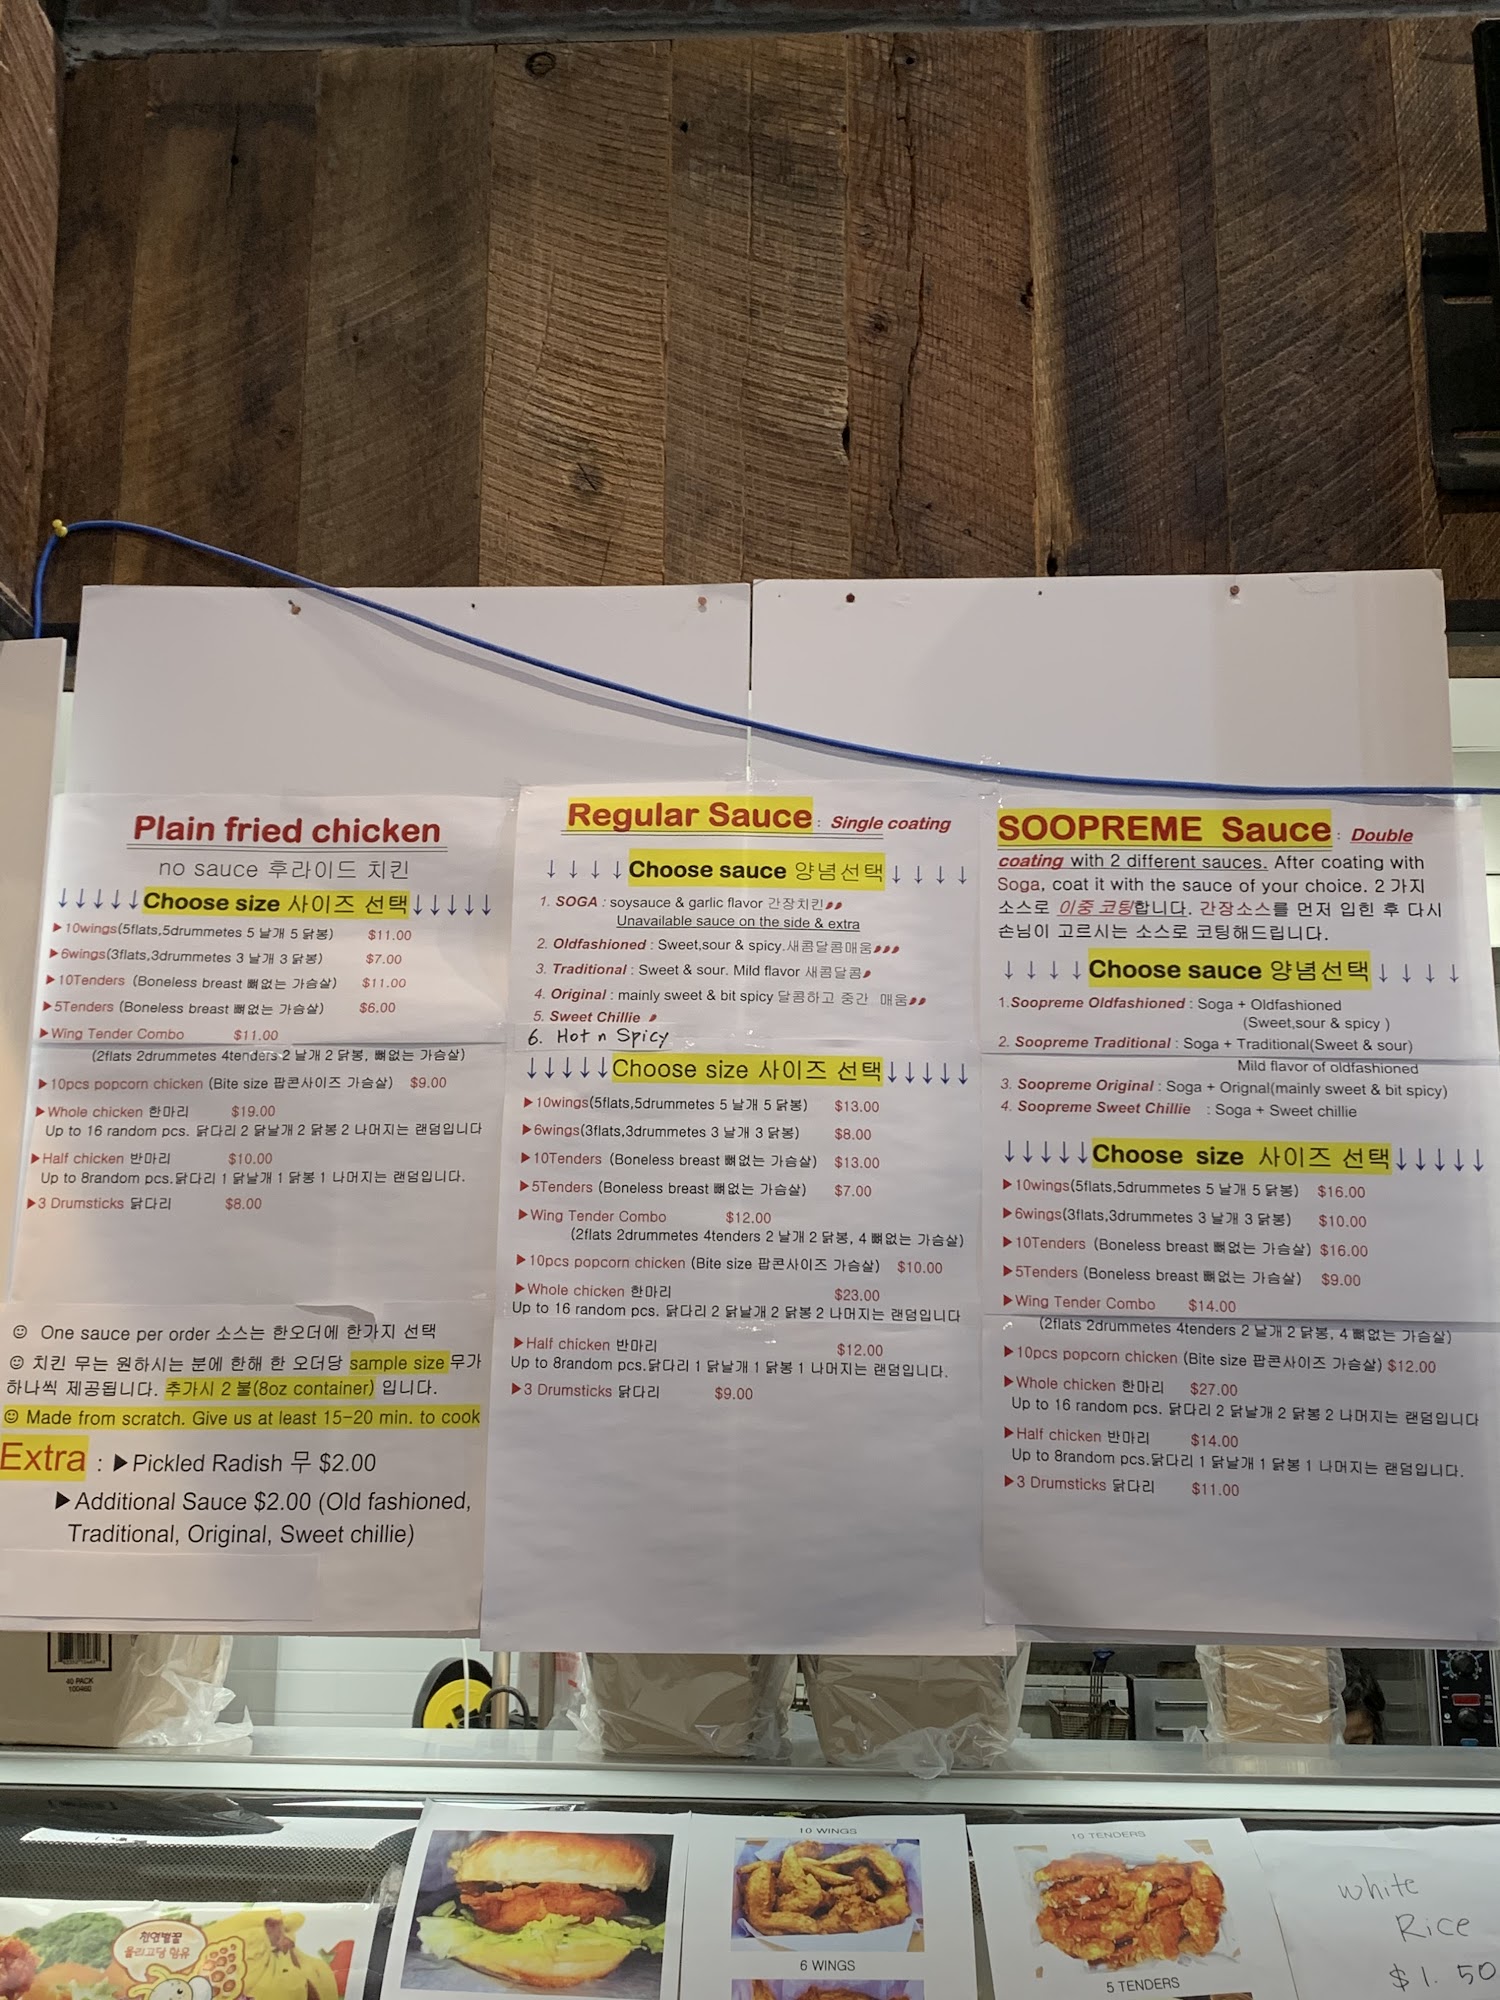 Plain fried chicken
no sauce 후라이드 치킨
↓↓↓↓↓Choose size 사이즈 선택↓↓↓↓↓
▶10wings(5flats,5drummetes 5 날개 5 닭봉) $11.00
▶6wings(3flats,3drummetes 3 날개 3 닭봉) $7.00
▶10Tenders (Boneless breast 뼈없는 가슴살) $11.00
▶5Tenders (Boneless breast 뼈없는 가슴살) $6.00
▶Wing Tender Combo $11.00
(2flats 2drummetes 4tenders 2 날개 2 닭봉, 뼈없는 가슴살)
▶10pcs popcorn chicken (Bite size 팝콘사이즈 가슴살) $9.00
▶Whole chicken 한마리 $19.00
Up to 16 random pcs. 닭다리 2 닭날개 2 닭봉 2 나머지는 랜덤입니다
▶Half chicken 반마리 $10.00
Up to 8random pcs.닭다리 1 닭날개 1 닭봉 1 나머지는 랜덤입니다.
▶3 Drumsticks 닭다리 $8.00
☺ One sauce per order 소스는 한오더에 한가지 선택
☺ 치킨 무는 원하시는 분에 한해 한 오더당 sample size 무가
하나씩 제공됩니다. 추가시 2 불(8oz container) 입니다.
☺ Made from scratch. Give us at least 15-20 min. to cook
Extra : ▶Pickled Radish 무 $2.00
▶Additional Sauce $2.00 (Old fashioned,
Traditional, Original, Sweet chillie)
Regular Sauce : Single coating
↓↓↓↓Choose sauce 양념선택↓↓↓↓
1. SOGA : soysauce & garlic flavor 간장치킨
Unavailable sauce on the side & extra
2. Oldfashioned : Sweet,sour & spicy.새콤달콤매움
3. Traditional : Sweet & sour. Mild flavor 새콤달콤
4. Original : mainly sweet & bit spicy 달콤하고 중간 매움
5. Sweet Chillie
6. Hot n Spicy
↓↓↓↓↓Choose size 사이즈 선택↓↓↓↓↓
▶10wings(5flats,5drummetes 5 날개 5 닭봉) $13.00
▶6wings(3flats,3drummetes 3 날개 3 닭봉) $8.00
▶10Tenders (Boneless breast 뼈없는 가슴살) $13.00
▶5Tenders (Boneless breast 뼈없는 가슴살) $7.00
▶Wing Tender Combo $12.00
(2flats 2drummetes 4tenders 2 날개 2 닭봉, 4 뼈없는 가슴살)
▶10pcs popcorn chicken (Bite size 팝콘사이즈 가슴살) $10.00
▶Whole chicken 한마리 $23.00
Up to 16 random pcs. 닭다리 2 닭날개 2 닭봉 2 나머지는 랜덤입니다
▶Half chicken 반마리 $12.00
Up to 8random pcs.닭다리 1 닭날개 1 닭봉 1 나머지는 랜덤입니다.
▶3 Drumsticks 닭다리 $9.00
SOOPREME Sauce : Double
coating with 2 different sauces. After coating with
Soga, coat it with the sauce of your choice. 2 가지
소스로 이중 코팅합니다. 간장소스를 먼저 입힌 후 다시
손님이 고르시는 소스로 코팅해드립니다.
↓↓↓↓Choose sauce 양념선택↓↓↓↓
1.Soopreme Oldfashioned : Soga + Oldfashioned
(Sweet,sour & spicy )
2. Soopreme Traditional : Soga + Traditional(Sweet & sour)
Mild flavor of oldfashioned
3. Soopreme Original : Soga + Orignal(mainly sweet & bit spicy)
4. Soopreme Sweet Chillie : Soga + Sweet chillie
↓↓↓↓↓Choose size 사이즈 선택↓↓↓↓↓
▶10wings(5flats,5drummetes 5 날개 5 닭봉) $16.00
▶6wings(3flats,3drummetes 3 날개 3 닭봉) $10.00
▶10Tenders (Boneless breast 뼈없는 가슴살) $16.00
▶5Tenders (Boneless breast 뼈없는 가슴살) $9.00
▶Wing Tender Combo $14.00
(2flats 2drummetes 4tenders 2 날개 2 닭봉, 4 뼈없는 가슴살)
▶10pcs popcorn chicken (Bite size 팝콘사이즈 가슴살) $12.00
▶Whole chicken 한마리 $27.00
Up to 16 random pcs. 닭다리 2 닭날개 2 닭봉 2 나머지는 랜덤입니다
▶Half chicken 반마리 $14.00
Up to 8random pcs.닭다리 1 닭날개 1 닭봉 1 나머지는 랜덤입니다.
▶3 Drumsticks 닭다리 $11.00
40 PACK
100460
천연벌꿀
올리고당 함유
10 WINGS
6 WINGS
10 TENDERS
5 TENDERS
white
Rice
$1.50